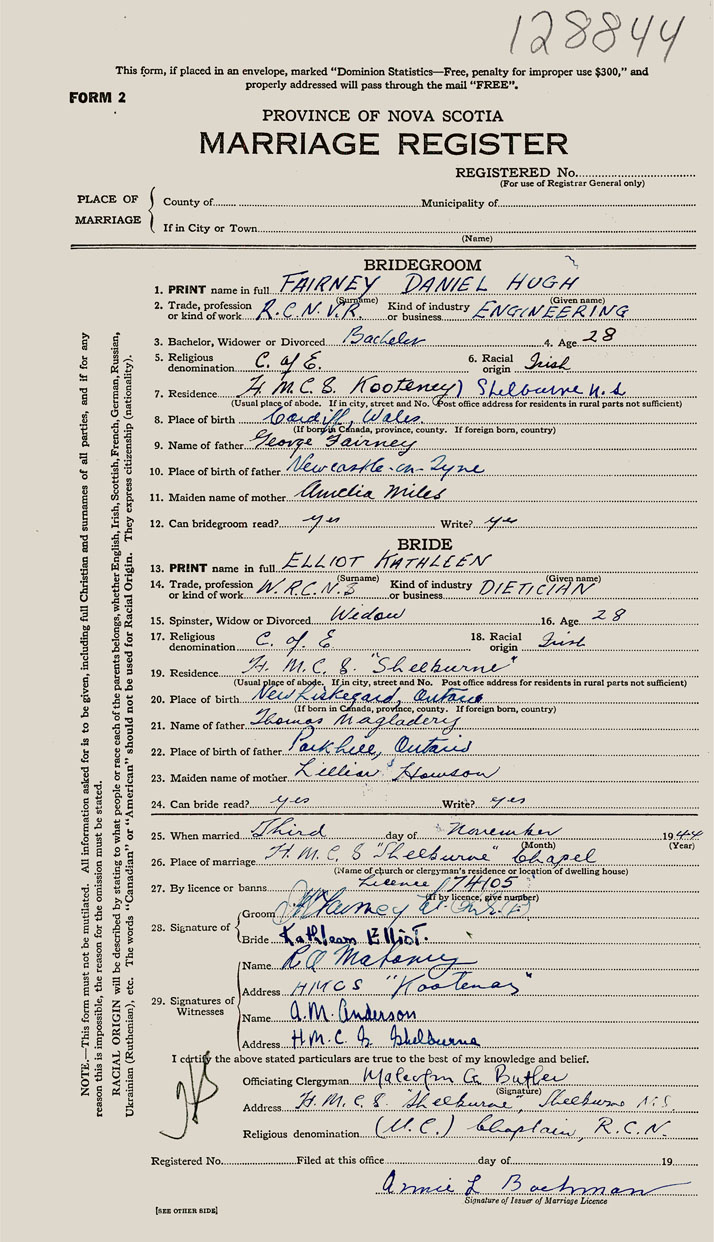 128844
This form, if placed in an envelope, marked "Dominion Statistics—Free, penalty for improper use $300," and
properly addressed will pass through the mail "FREE".
FORM 2
PROVINCE OF NOVA SCOTIA
MARRIAGE REGISTER
REGISTERED No.
(For use of Registrar General only)
PLACE OF MARRIAGE
County of Municipality of
If in City or Town
(Name)
NOTE.—This form must not be mutilated. All information asked for is to be given, including full Christian and surnames of all parties, and if for any
reason this is impossible, the reason for the omission must be stated.
RACIAL ORIGIN will be described by stating to what people or race each of the parents belongs, whether English, Irish, Scottish, French, German, Russian,
Ukrainian (Ruthenian), etc. The words "Canadian" or "American" should not be used for Racial Origin. They express citizenship (nationality).
BRIDEGROOM
1. PRINT name in full FAIRNEY DANIEL HUGH
(Surname) (Given name)
2. Trade, profession or kind of work R.C.N.V.R. Kind of industry or business ENGINEERING
3. Bachelor, Widower or Divorced Bachelor 4. Age 28
5. Religious denomination C. of E. 6. Racial origin Irish
7. Residence H.M.C.S. Kooteney) Shelburne N.S
(Usual place of abode. If in city, street and No. Post office address for residents in rural parts not sufficient)
8. Place of birth Cardiff, Wales.
(If born in Canada, province, county. If foreign born, country)
9. Name of father George Fairney
10. Place of birth of father Newcastle-on-Tyne
11. Maiden name of mother Amelia Miles
12. Can bridegroom read? yes Write? yes
BRIDE
13. PRINT name in full ELLIOT KATHLEEN
(Surname) (Given name)
14. Trade, profession or kind of work W.R.C.N.S Kind of industry or business DIETICIAN
15. Spinster, Widow or Divorced Widow 16. Age 28
17. Religious denomination C. of E 18. Racial origin Irish
19. Residence H.M.C.S. "Shelburne"
(Usual place of abode. If in city, street and No. Post office address for residents in rural parts not sufficient)
20. Place of birth New Liskegard, Ontario
(If born in Canada, province, county. If foreign born, country)
21. Name of father Thomas Magladery
22. Place of birth of father Parkhill, Ontario
23. Maiden name of mother Lillian Howson
24. Can bride read? yes Write? yes
25. When married Third day of November 1944
(Month) (Year)
26. Place of marriage H.M.C.S "Shelburne" Chapel
(Name of church or clergyman's residence or location of dwelling house)
27. By licence or banns Licence 74105
(If by licence, give number)
28. Signature of
Groom Fairney
Bride Kathleen Elliot.
29. Signatures of Witnesses
Name Mahoney
Address HMCS "Kootenay"
Name A.M. Anderson
Address H.M.C.S. Shelburne
I certify the above stated particulars are true to the best of my knowledge and belief.
Officiating Clergyman Malcolm G. Butler
(Signature)
Address H.M.C.S. "Shelburne", Shelburne N.S.
Religious denomination (U.C.) Chaplain, R.C.N.
Registered No. Filed at this office day of 19
Annie L Bochman
Signature of Issuer of Marriage Licence
[SEE OTHER SIDE]